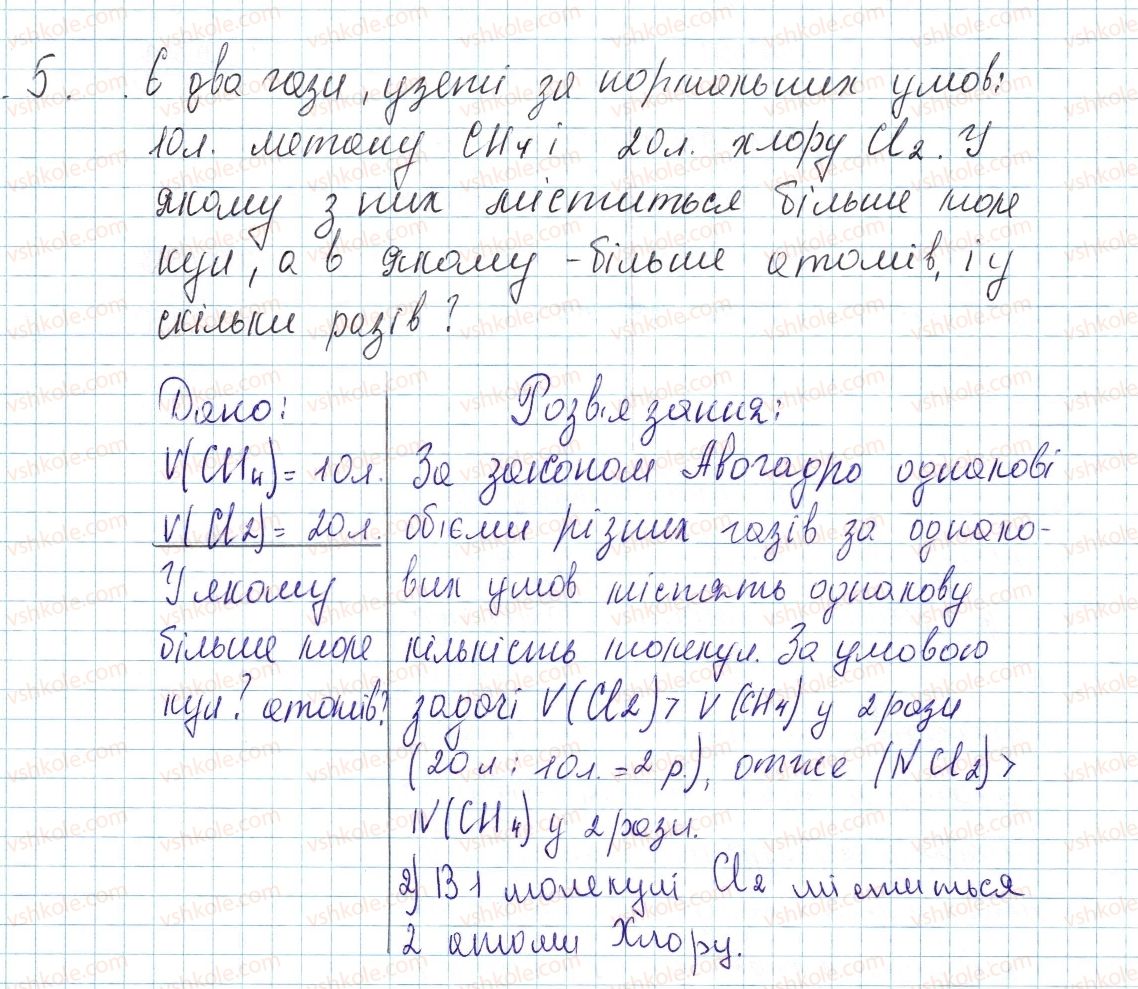 5. Є два гази, узяті за нормальних умов:
10л. метану CH4 і 20л. хлору Cl2. У
якому з них міститься більше моле
кул, а в якому - більше атомів, і у
скільки разів?
Дано:
V(CH4) = 10л.
V(Cl2) = 20л.
У якому
більше моле
кул? атомів?
Розв'язання:
За законом Авогадро однакові
обієми різних газів за однако-
вих умов містять однакову
кількість молекул. За умовою
задачі V(Cl2) > V(CH4) у 2 рази
(20л : 10л. = 2 р.), отже (N Cl2) >
N(CH4) у 2 рази.
2) В 1 молекулі Cl2 міститься
2 атоми Хлору.
vshkole.com